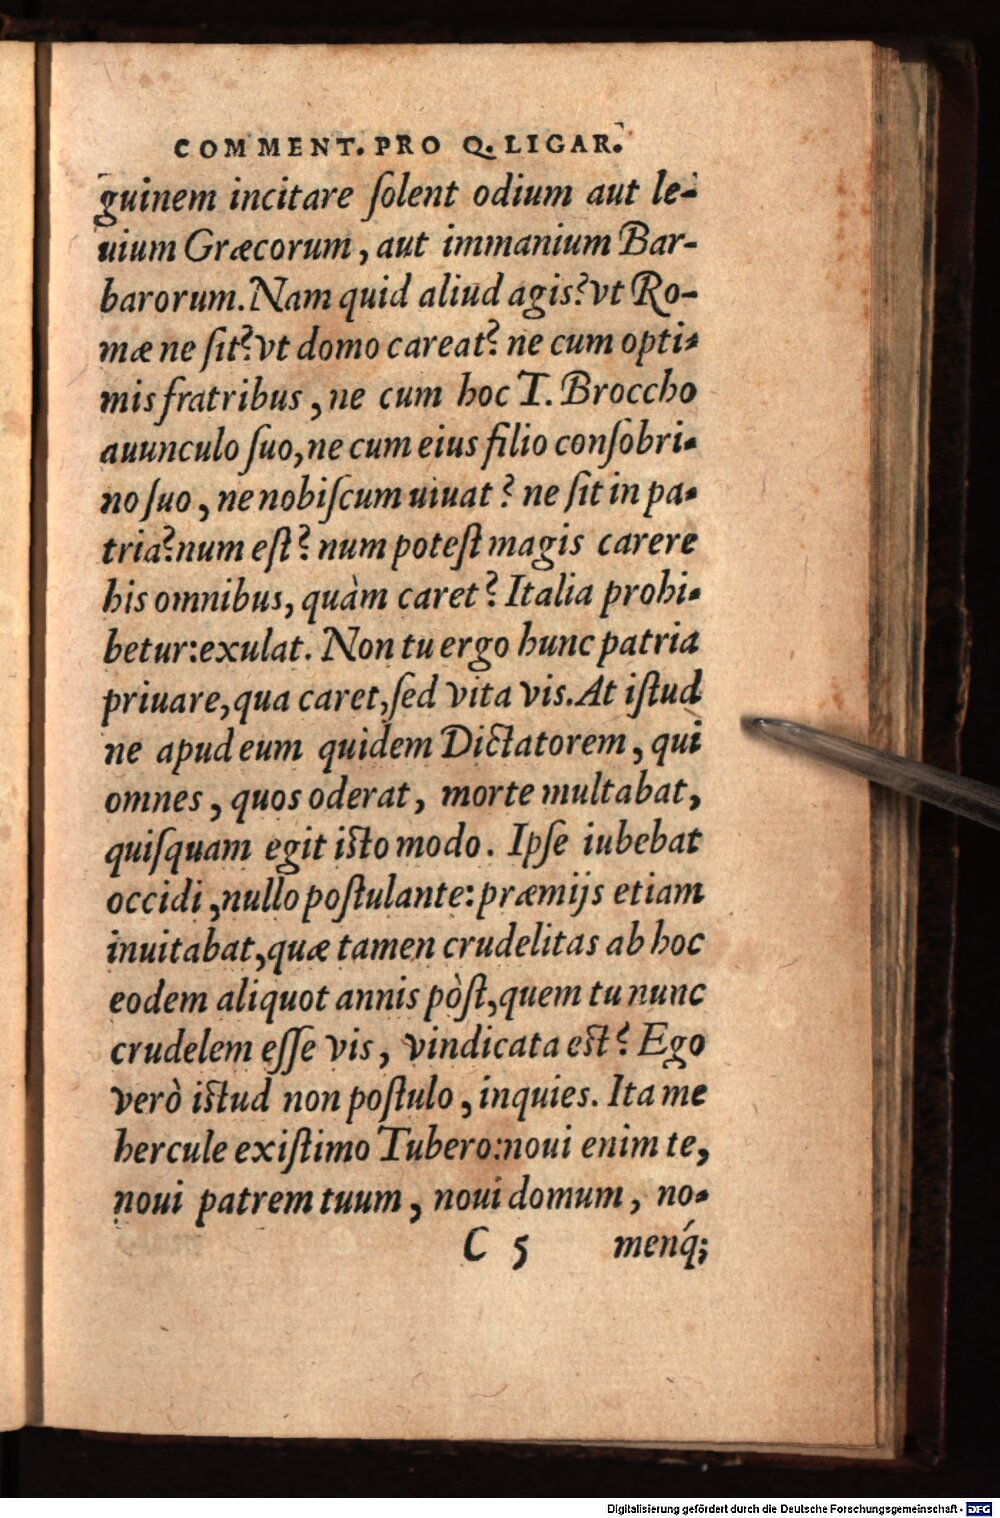 COMMENT. PRO Q. LIGAR.
guinem incitare ſolent odium aut le-
uium Græcorum, aut immanium Bar-
barorum. Nam quid aliud agis? vt Ro-
mæ ne ſit? vt domo careat? ne cum opti-
mis fratribus, ne cum hoc T. Broccho
auunculo ſuo, ne cum eius filio conſobri-
no ſuo, ne nobiſcum uiuat? ne ſit in pa-
tria? num eſt? num poteſt magis carere
his omnibus, quàm caret? Italia prohi-
betur: exulat. Non tu ergo hunc patria
priuare, qua caret, ſed vita vis. At iſtud
ne apud eum quidem Dictatorem, qui
omnes, quos oderat, morte multabat,
quiſquam egit iſto modo. Ipſe iubebat
occidi, nullo poſtulante: præmijs etiam
inuitabat, quæ tamen crudelitas ab hoc
eodem aliquot annis pòſt, quem tu nunc
crudelem eſſe vis, vindicata eſt? Ego
verò iſtud non poſtulo, inquies. Ita me
hercule exiſtimo Tubero: noui enim te,
noui patrem tuum, noui domum, no-
C 5 menq́;
Digitalisierung gefördert durch die Deutsche Forschungsgemeinschaft - DFG